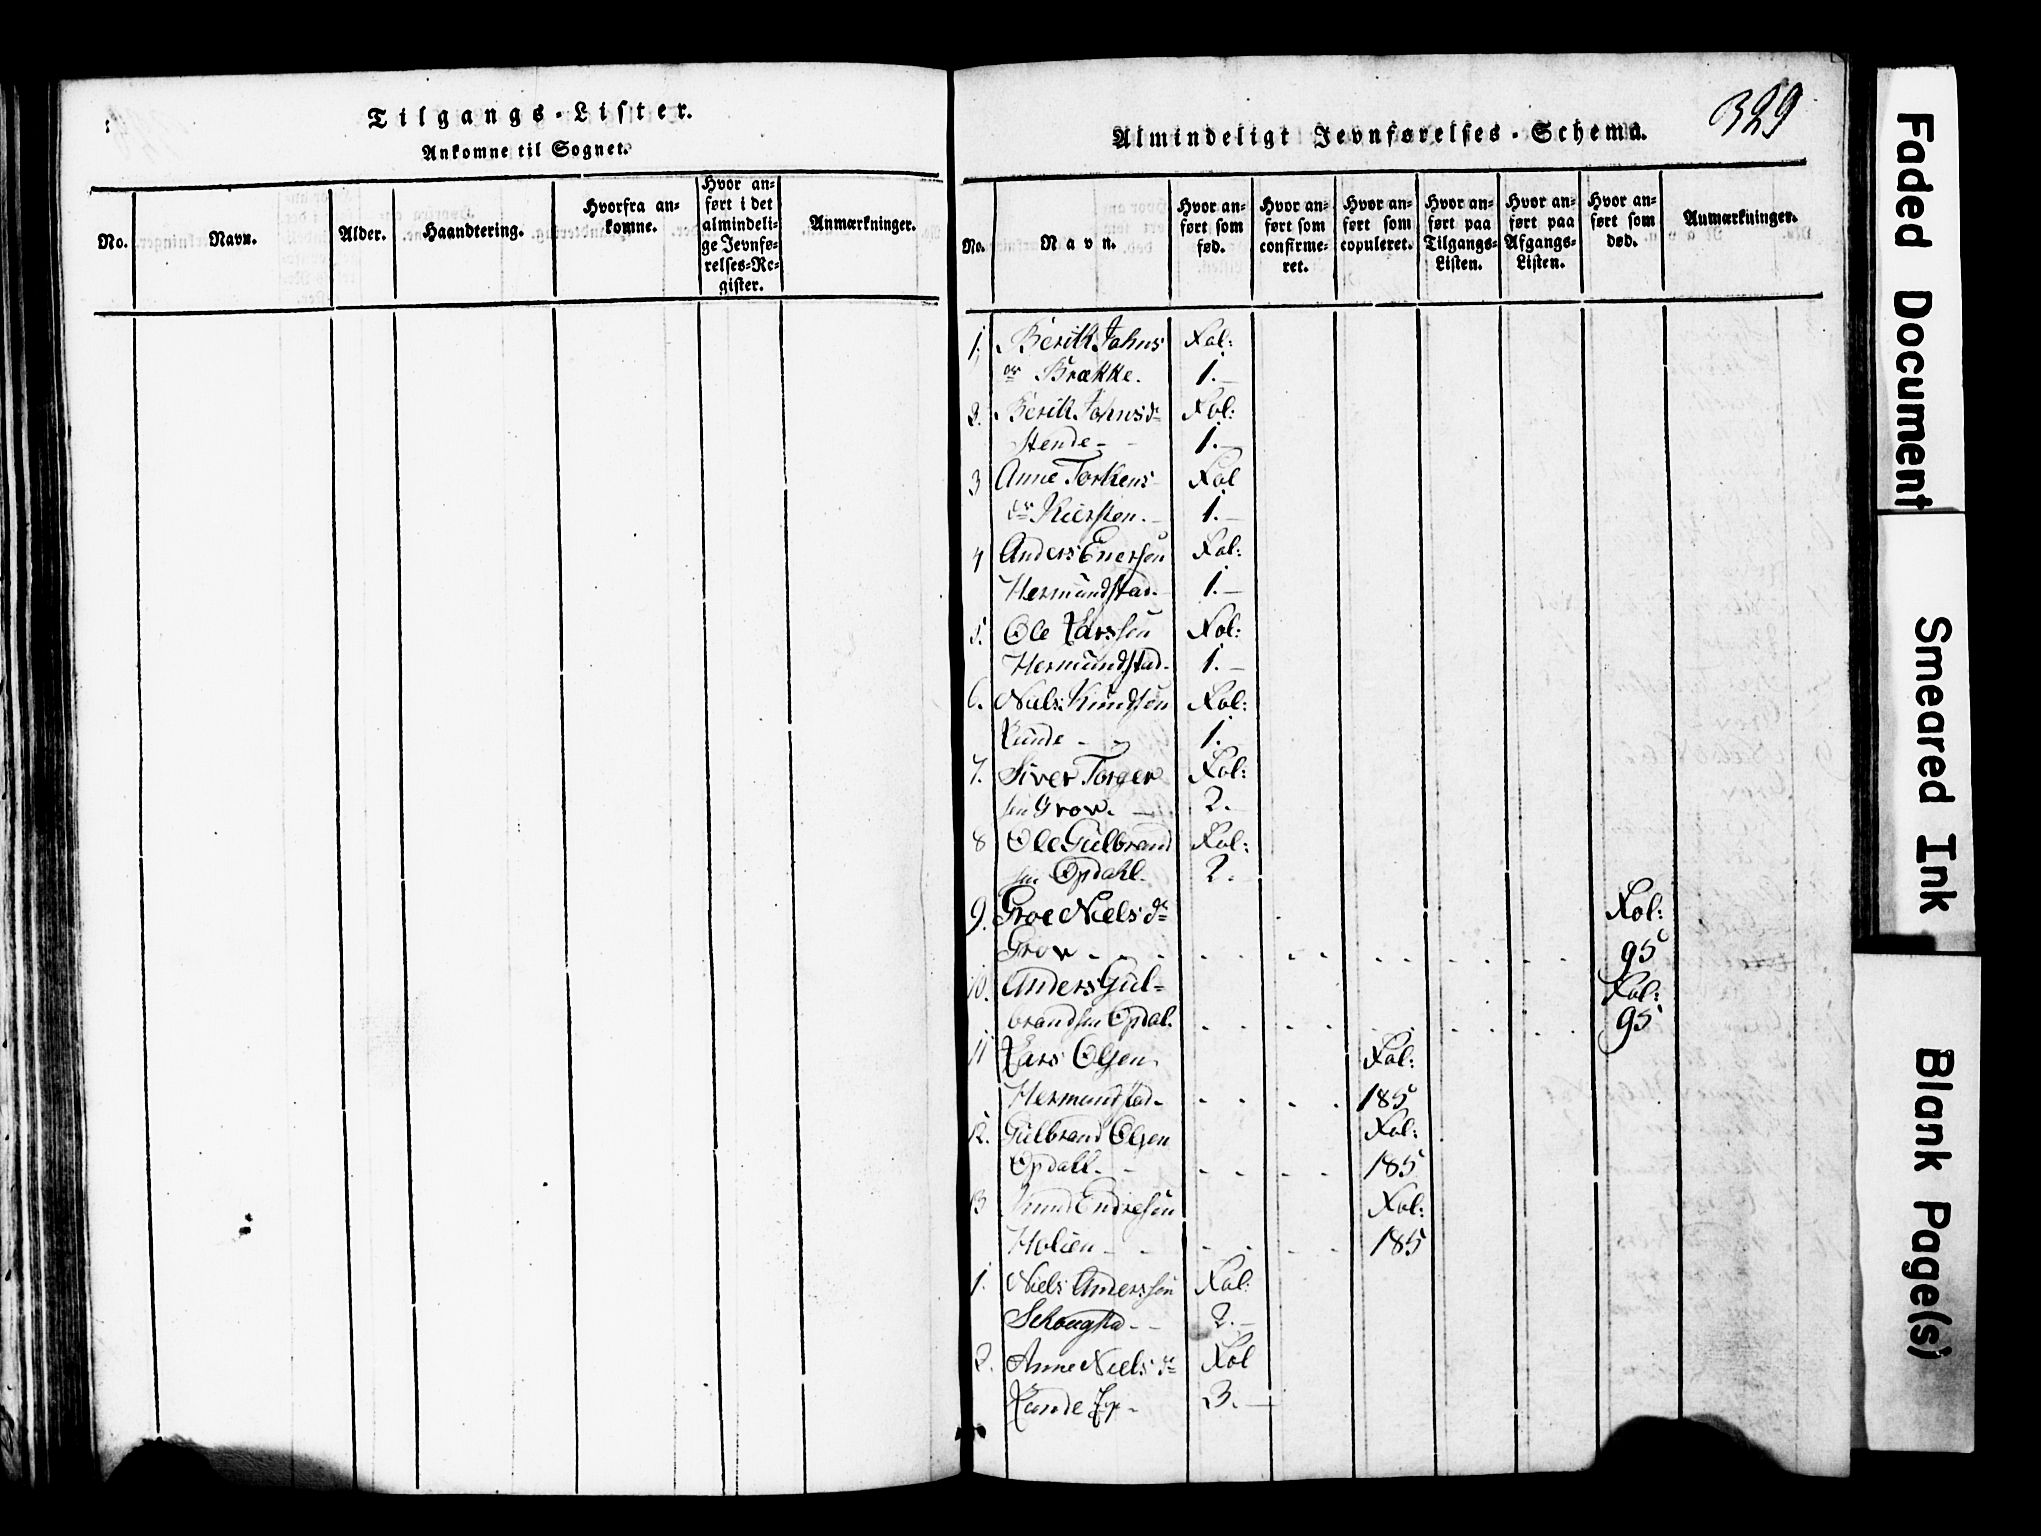 Tilgangs-Lister.
Ankomne til Sognet.
No.
Navn.
Alder.
Haandtering.
Hvorfra an-
komne.
Hvor an-
ført i det
almindeli-
ge Jevnfø-
relses-Re-
gister.
Anmærkninger.
329
Almindeligt Jevnførelses-Schema.
No.
Navn.
Hvor an-
ført som
fød.
Hvor an-
ført som
confirme-
ret.
Hvor an-
ført som
copuleret.
Hvor an-
ført paa
Tilgangs-
Listen.
Hvor an-
ført paa
Afgangs-
Listen.
Hvor an-
ført som
død.
Anmærkninger.
1. Berith Johns Fol:
dr Brække. 1.
2. Berith Johnsdr Fol:
Stende 1.
3 Anne Torkens Fol
dr 1.
4 Anders Enersøn Fol:
Hermundstad. 1.
5. Ole Larssøn Fol:
Hermundstad. 1.
6. Niels Knudsøn Fol:
Lunde 1.
7. Siver Torger Fol:
søn Grov. 2.
8 Ole Gulbrand Fol:
søn Opdahl. 2.
9. Groe Nielsdr Fol:
Grov 95
10. Anders Gul- Fol:
brandsøn Opdal. 95
11 Lars Olsen Fol:
Hermundstad. 185
12. Gulbrand Olsen Fol:
Opdall. 185
13 Knud Endresøn Fol:
Holien 185
1. Niels Anderssøn Fol:
Schougsta 2.
2. Anne Nielsdr Fol
Lunde 3.
Faded Document
Smeared Ink
Blank Page(s)